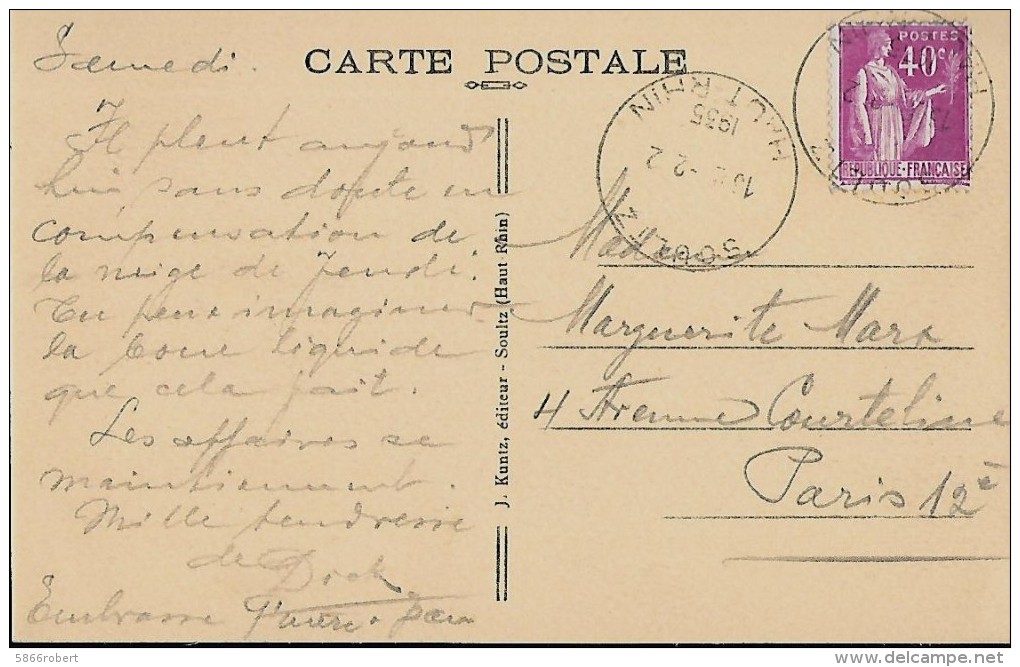 Samedi.
CARTE POSTALE
Il pleut aujourd
hui, sans doute en
compensation de
la neige de Jeudi.
Tu peux imaginer
la boue liquide
que cela fait.
Les affaires se
maintiennent.
Mille tendresse
de Dick
Embrasse
J. Kuntz, éditeur - Soultz (Haut Rhin)
SOULTZ
HAUT-RHIN
-2 2
1935
POSTES
40c
REPUBLIQUE·FRANÇAISE
Madame
Marguerite Marx
4 Avenue Courteline
Paris 12è
5866robert
delcampe.net